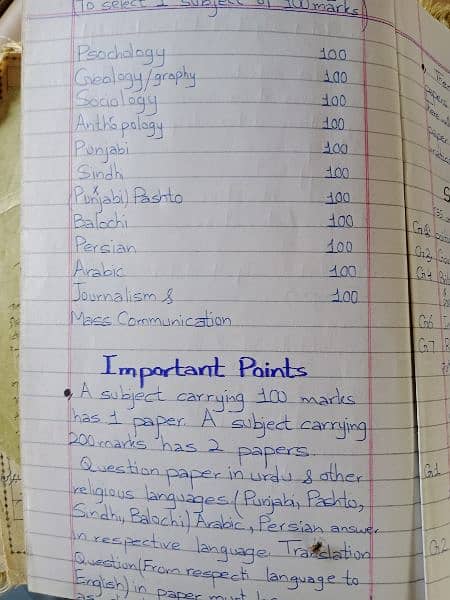 (To select 1 subject of 100 marks)
Psochology 100
Geology/graphy 100
Sociology 100
Anthopology 100
Punjabi 100
Sindh 100
(Punjabi) Pashto 100
Balochi 100
Persian 100
Arabic 100
Journalism & 100
Mass Communication
Important Points
A subject carrying 100 marks
has 1 paper. A subject carrying
200marks has 2 papers.
Question paper in urdu & other
religious languages (Punjabi, Pashto,
Sindh, Balochi) Arabic, Persian answer
in respective language. Translation
Question (From respecti language to
English) in paper must